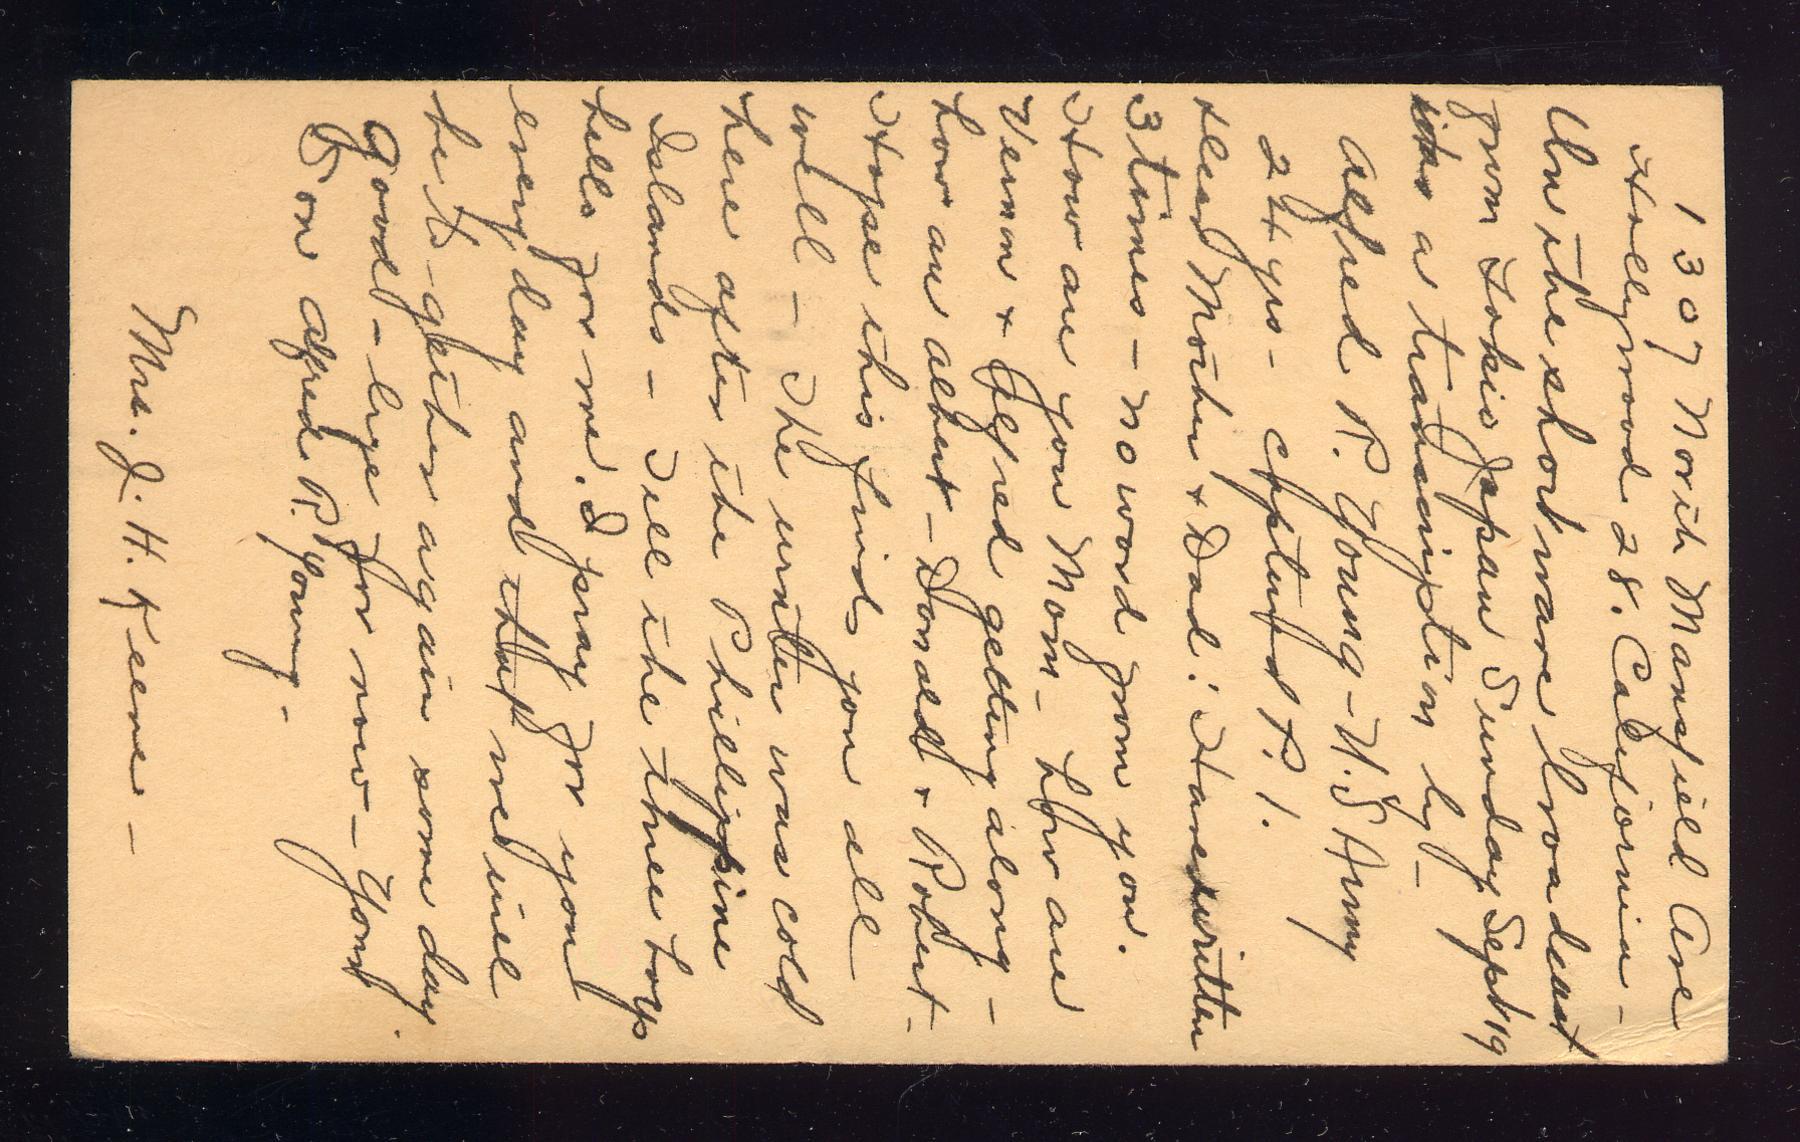 1307 North Mansfield Ave
Hollywood 28. California -
On the short wave broadcast
from Tokio Japan Sunday Sept 19
was a transcription by -
Alfred R. Young - U.S Army
24 yrs - Captured P. I.
Dear Mother + Dad: Have written
3 times - no word from you.
How are you Mom - how are
Vernon + Jelred getting along -
how are Albert - Donald + Robert -
Hope this finds you all
well - The winter was cold
here after the Phillippine
Islands - Tell the three boys
hello for me. I pray for you
every day and that we will
be to-gether again some day.
Good-bye for now - Your
Son Alfred R. Young -
Mrs. J. H. Keene -